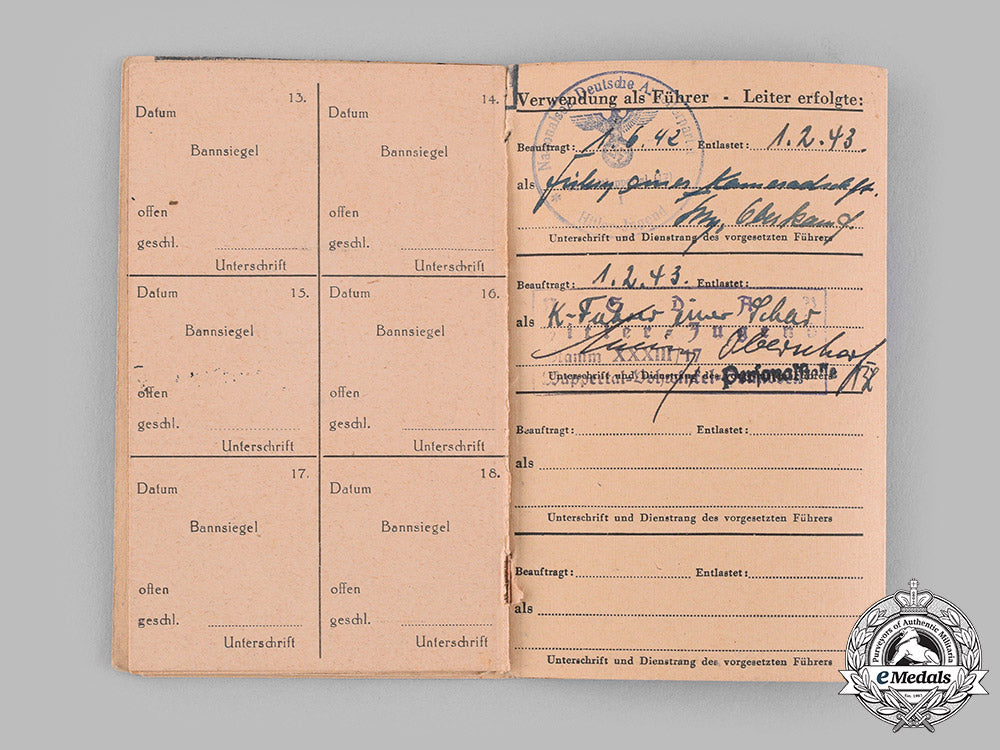 13.
Datum
Bannsiegel
offen
geschl.
Unterschrift
14.
Datum
Bannsiegel
offen
geschl.
Unterschrift
15.
Datum
Bannsiegel
offen
geschl.
Unterschrift
16.
Datum
Bannsiegel
offen
geschl.
Unterschrift
17.
Datum
Bannsiegel
offen
geschl.
Unterschrift
18.
Datum
Bannsiegel
offen
geschl.
Unterschrift
Verwendung als Führer - Leiter erfolgte:
Beauftragt: 1.6.42 Entlastet: 1.2.43.
als einer Kameradschaft.
Unterschrift und Dienstrang des vorgesetzten Führers
Nationalsoz. Deutsche Arbeiterpartei
Hitler-Jugend
Beauftragt: 1.2.43. Entlastet:
als K-Führer einer Schar
Oberscharf
Unterschrift und Dienstrang des vorgesetzten Führers
N.S.D.A.P.
Hitler-Jugend
Stamm XXXIII/17
Personalstelle
Beauftragt: Entlastet:
als
Unterschrift und Dienstrang des vorgesetzten Führers
Beauftragt: Entlastet:
als
Unterschrift und Dienstrang des vorgesetzten Führers
Purveyors of Authentic Militaria
eMedals